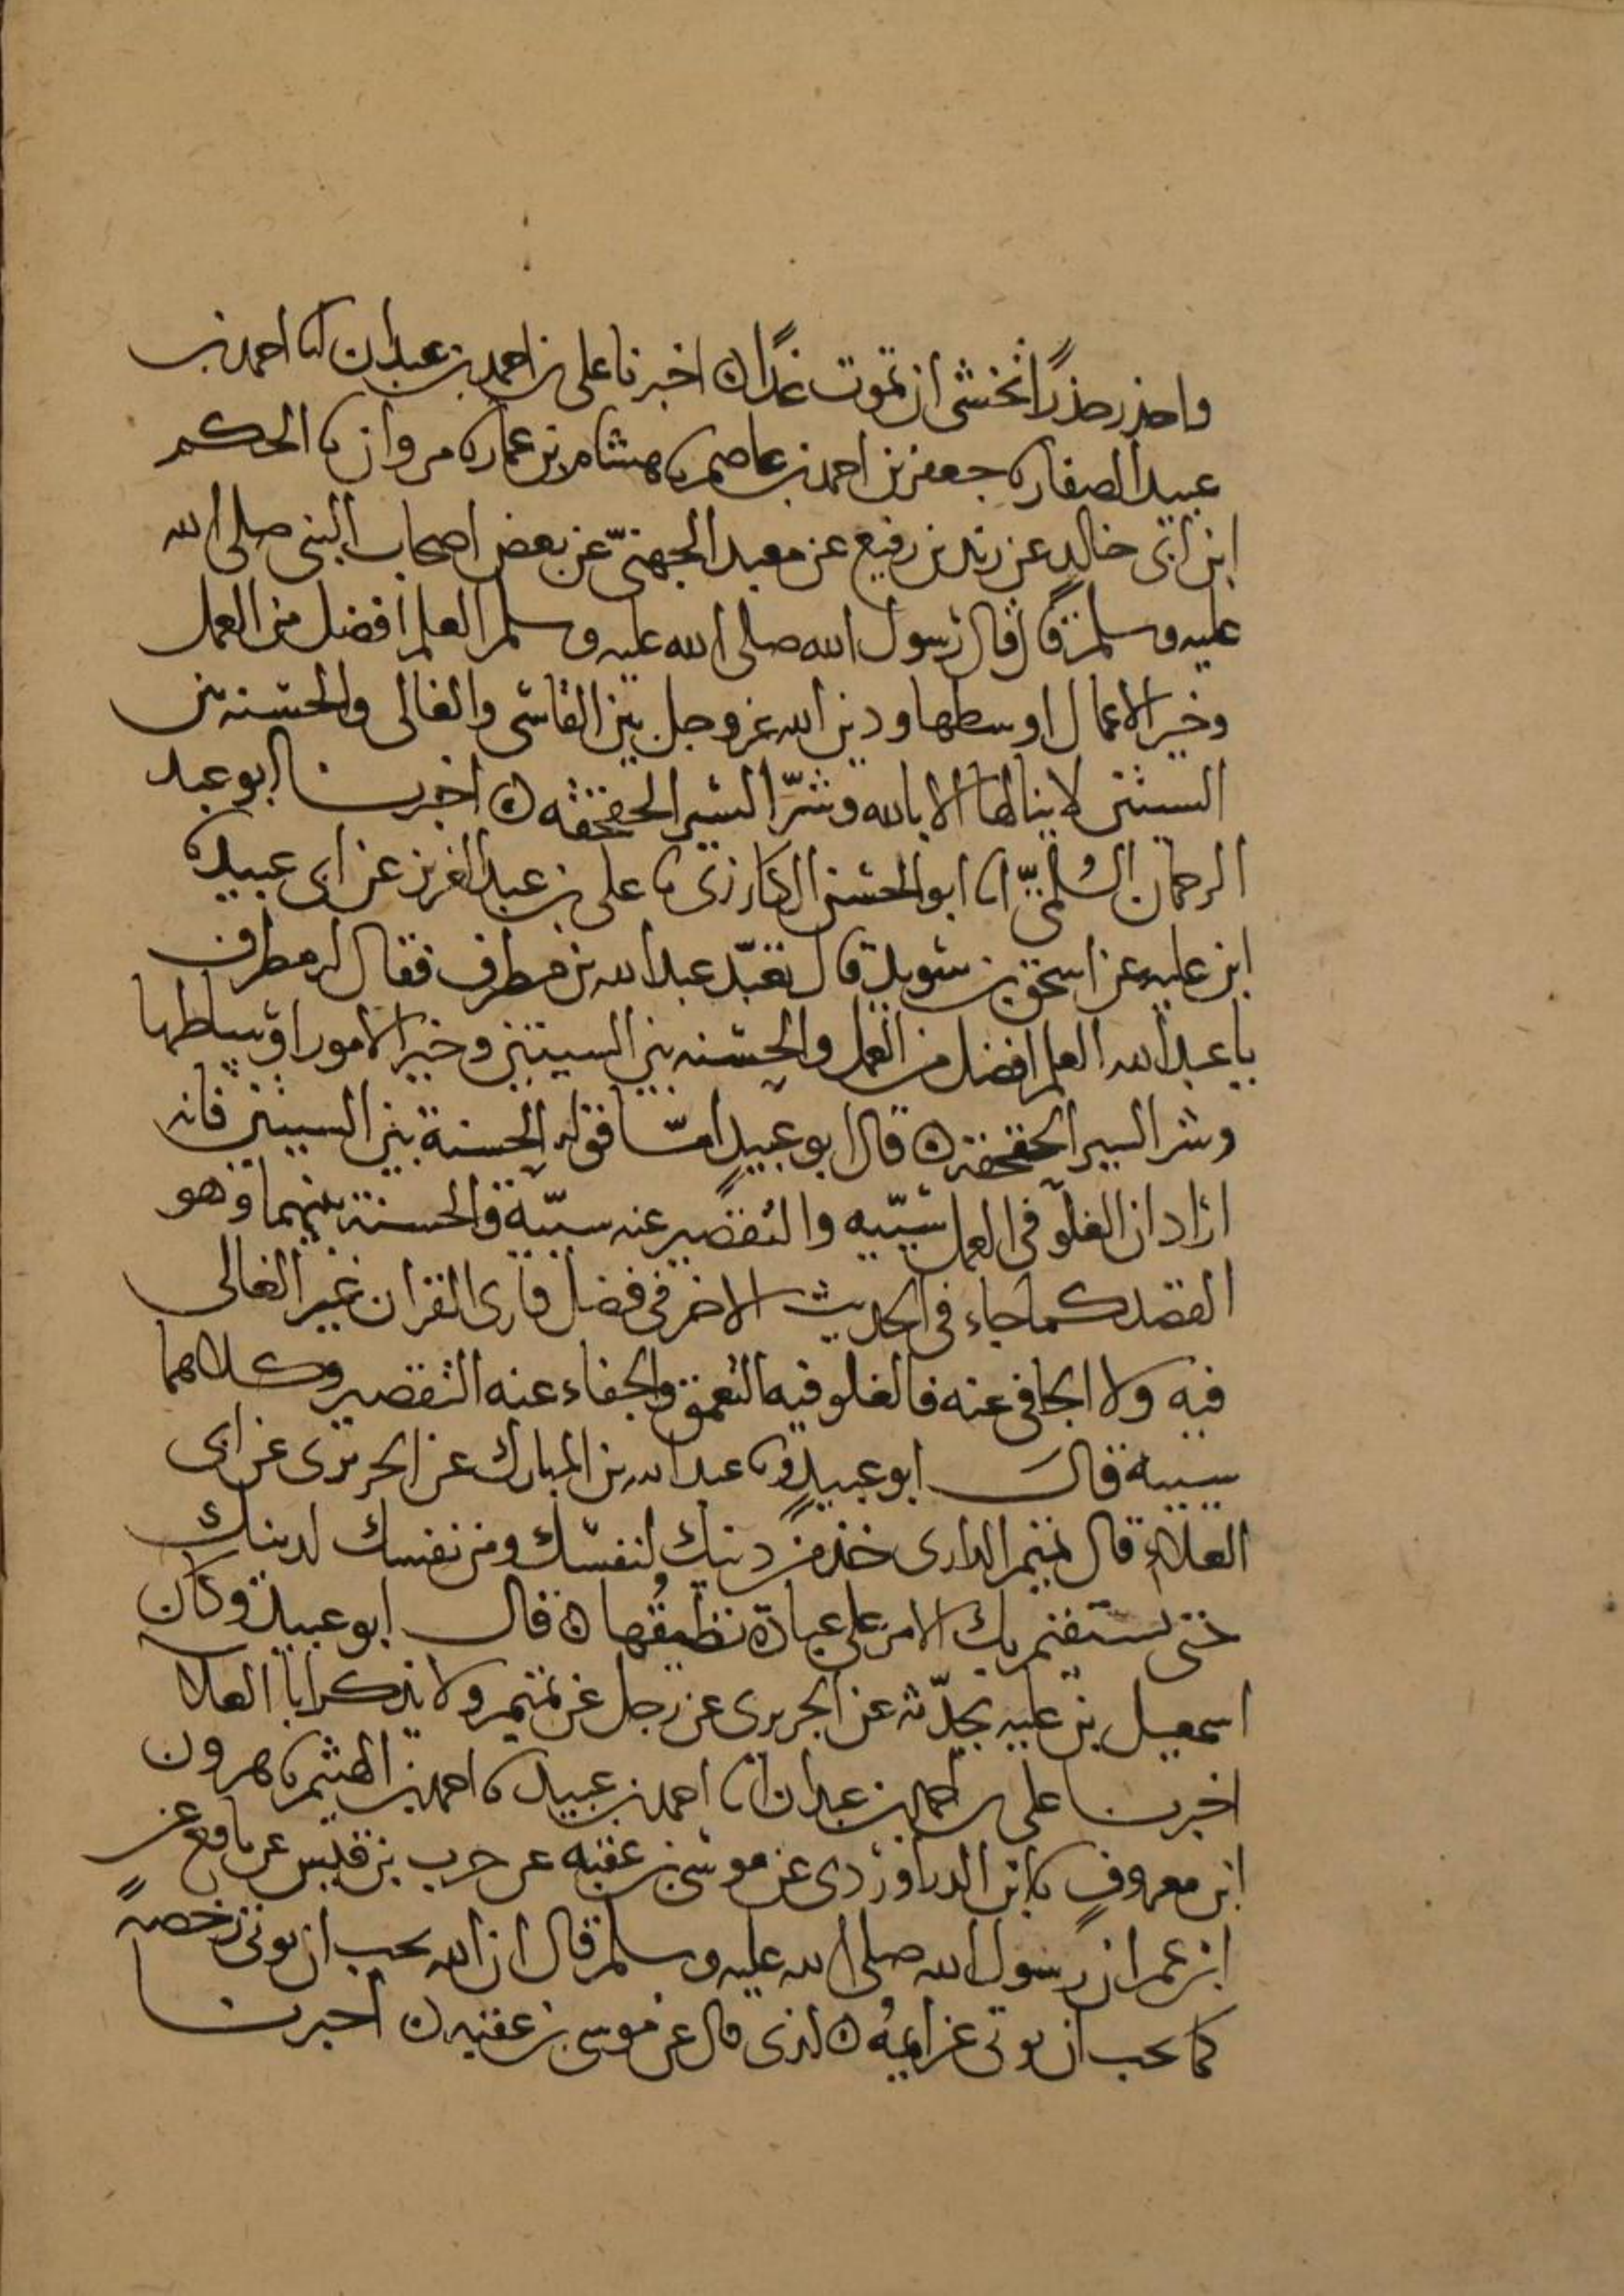 واحذر حذرا تخشى ان تموت غدا ه اخبرنا على بن احمد بن عبدان انا احمد بن
عبيد الصفار نا جعفر بن احمد بن عاصم نا هشام بن عمار نا مروان نا الحكم
ابن ابى خالد عن زيد بن رفيع عن معبد الجهنىّ عن بعض اصحاب النبى صلى الله
عليه وسلم قال قال رسول الله صلى الله عليه وسلم العلم افضل من العمل
وخير الاعمال اوسطها ودين الله عز وجل بين القاسى والغالى والحسنه بين
السيئتين لا ينالها الا بالله وشرّ السير الحقحقه ه اخبرنا ابو عبد
الرحمان السُلمىّ انا ابو الحسن الكارزى نا على بن عبد العزيز عن ابى عبيد نا
ابن عليه عن اسحق بن سويد قال تعبّد عبد الله بن مطرف فقال له مطرف
يا عبد الله العلم افضل من العمل والحسنه بين السيئتين وخير الامور اوساطها
وشر السير الحقحقه ه قال ابو عبيد امّا قوله الحسنة بين السيئتين فانه
اراد ان الغلوّ فى العمل سيّئه والتقصير عنه سيّئة والحسنة بينهما وهو
القصد كما جاء فى الحديث الاخر فى فضل قارى القران غير الغالى
فيه ولا الجافى عنه فالغلو فيه التعمق والجفاء عنه التقصير وكلاهما
سيئة قال ابو عبيد ونا عبد الله بن المبارك عن الجريرى عن ابى
العلاء قال تميم الدارى خذ من دينك لنفسك ومن نفسك لدينك
حتى يستقيم بك الامر على عبادة تطيقُها ه قال ابو عبيد وكان
اسمعيل بن عليه يحدّثه عن الجريرى عن رجل عن تميم ولا يذكر ابا العلا
اخبرنا على بن احمد بن عبدان انا احمد بن عبيد نا احمد بن الهيثم نا هرون
ابن معروفٍ نا ابن الدراوردى عن موسى بن عقبه عن حرب بن قيس عن نافع عن
ابن عمر ان رسول الله صلى الله عليه وسلم قال ان الله يحب ان توتى رخصه
كما يحب ان توتى عزايمُه ه الذى قال عن موسى بن عقبه ه اخبرنا